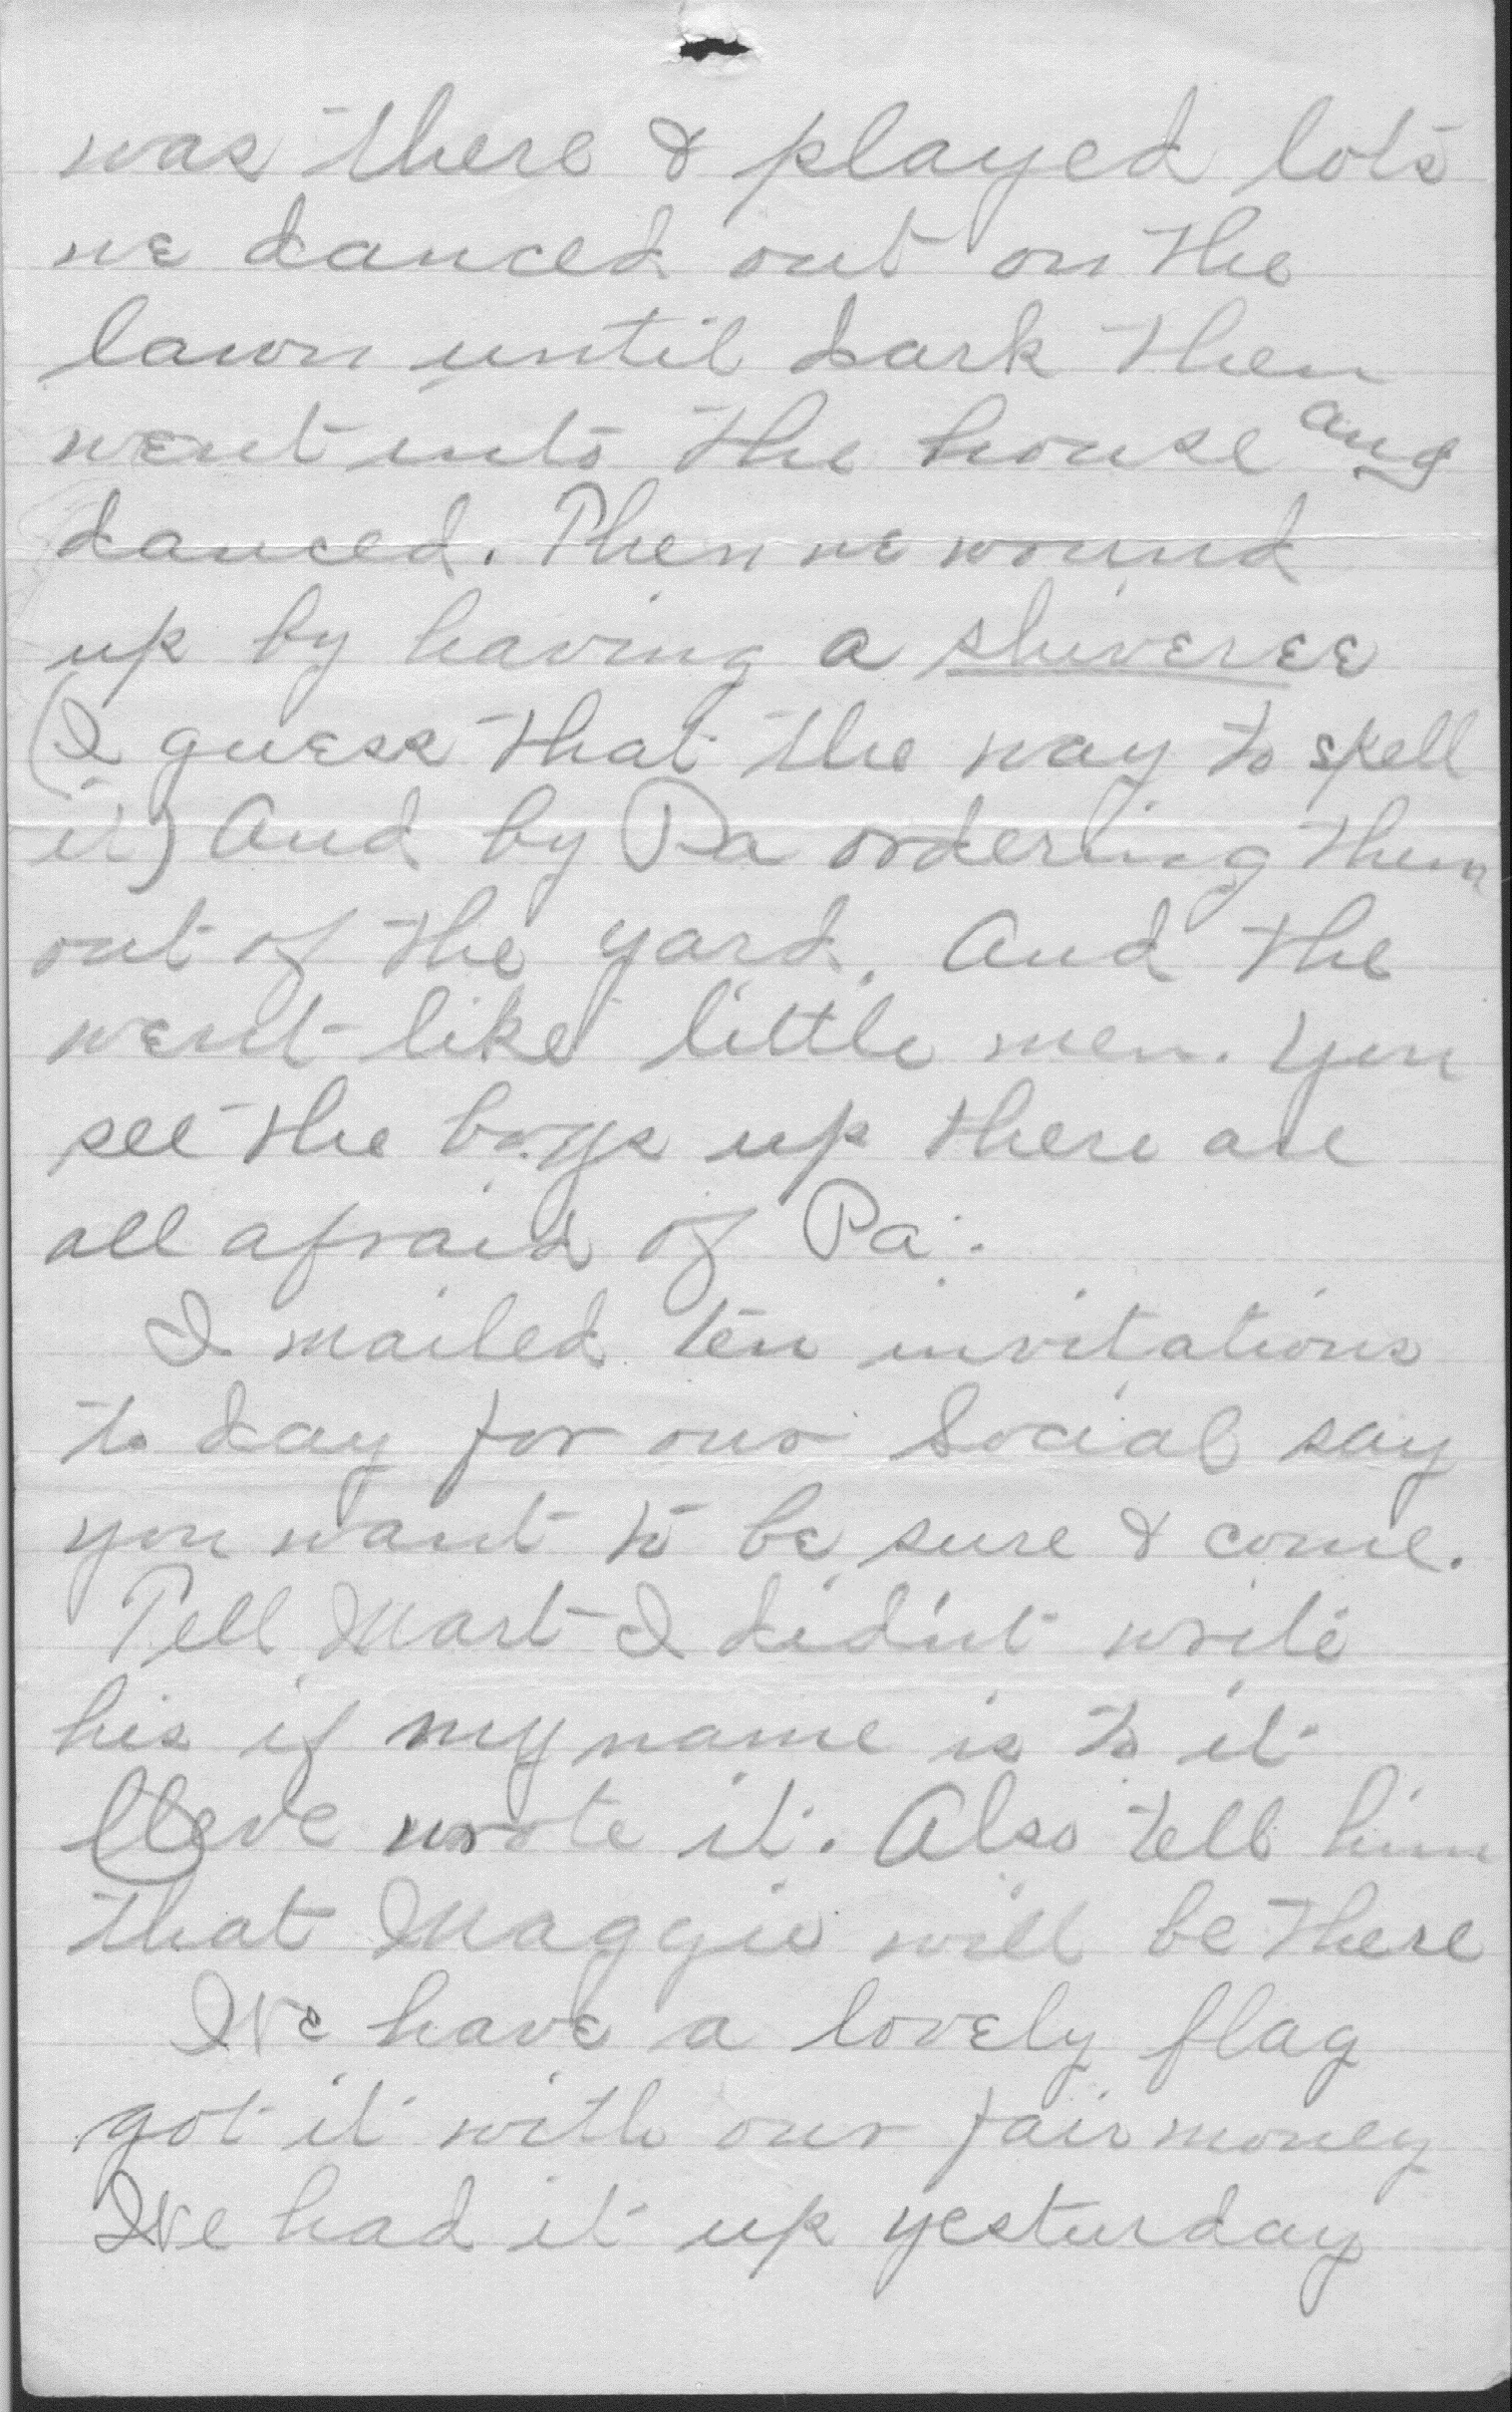 was there & played lots
we danced out on the
lawn until dark then
went into the house and
danced. Then we wound
up by having a shiveree
(I guess that the way to spell
it) And by Pa ordering them
out of the yard. And the
went like little men. You
see the boys up there are
all afraid of Pa.
I mailed ten invitations
to day for our Social say
you want to be sure & come.
Tell Mart I didn't write
his if my name is to it
Cleve wrote it. Also tell him
that Maggie will be there
We have a lovely flag
got it with our fair money
We had it up yesturday